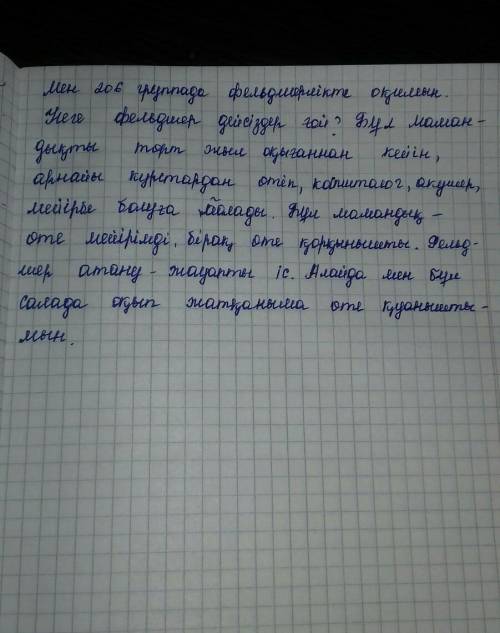 Мен 206 группада фельдшерлікте оқимын.
Неге фельдшер дейсіздер ғой? Бұл маман-
дықты төрт жыл оқығаннан кейін,
арнайы курстардан өтіп, косметолог, акушер,
мейірбе болуға болады. Бұл мамандық -
өте мейірімді, бірақ өте қорқынышты. Фельд-
шер атану - жауапты іс. Алайда мен бұл
салада оқып жатқаныма өте қуанышты-
мын.